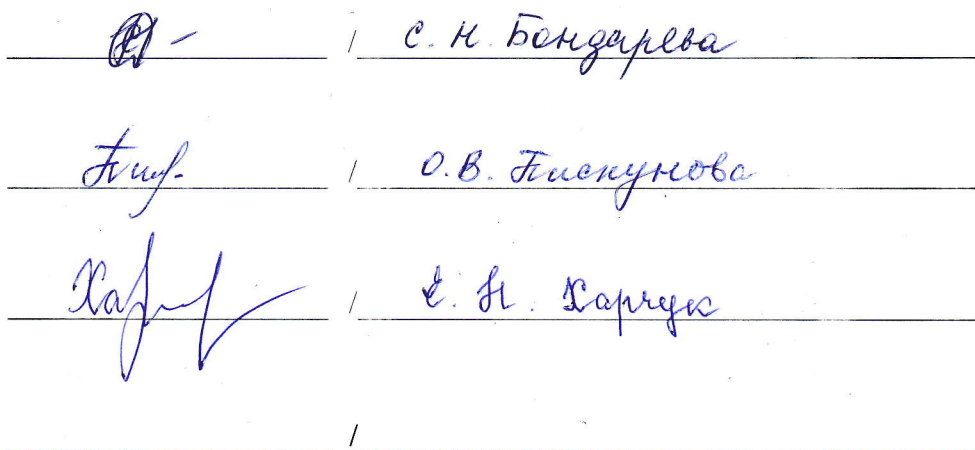 / С. Н. Бондарева
Пис. / О. В. Пискунова
Хар / Е. Н. Харчук
/